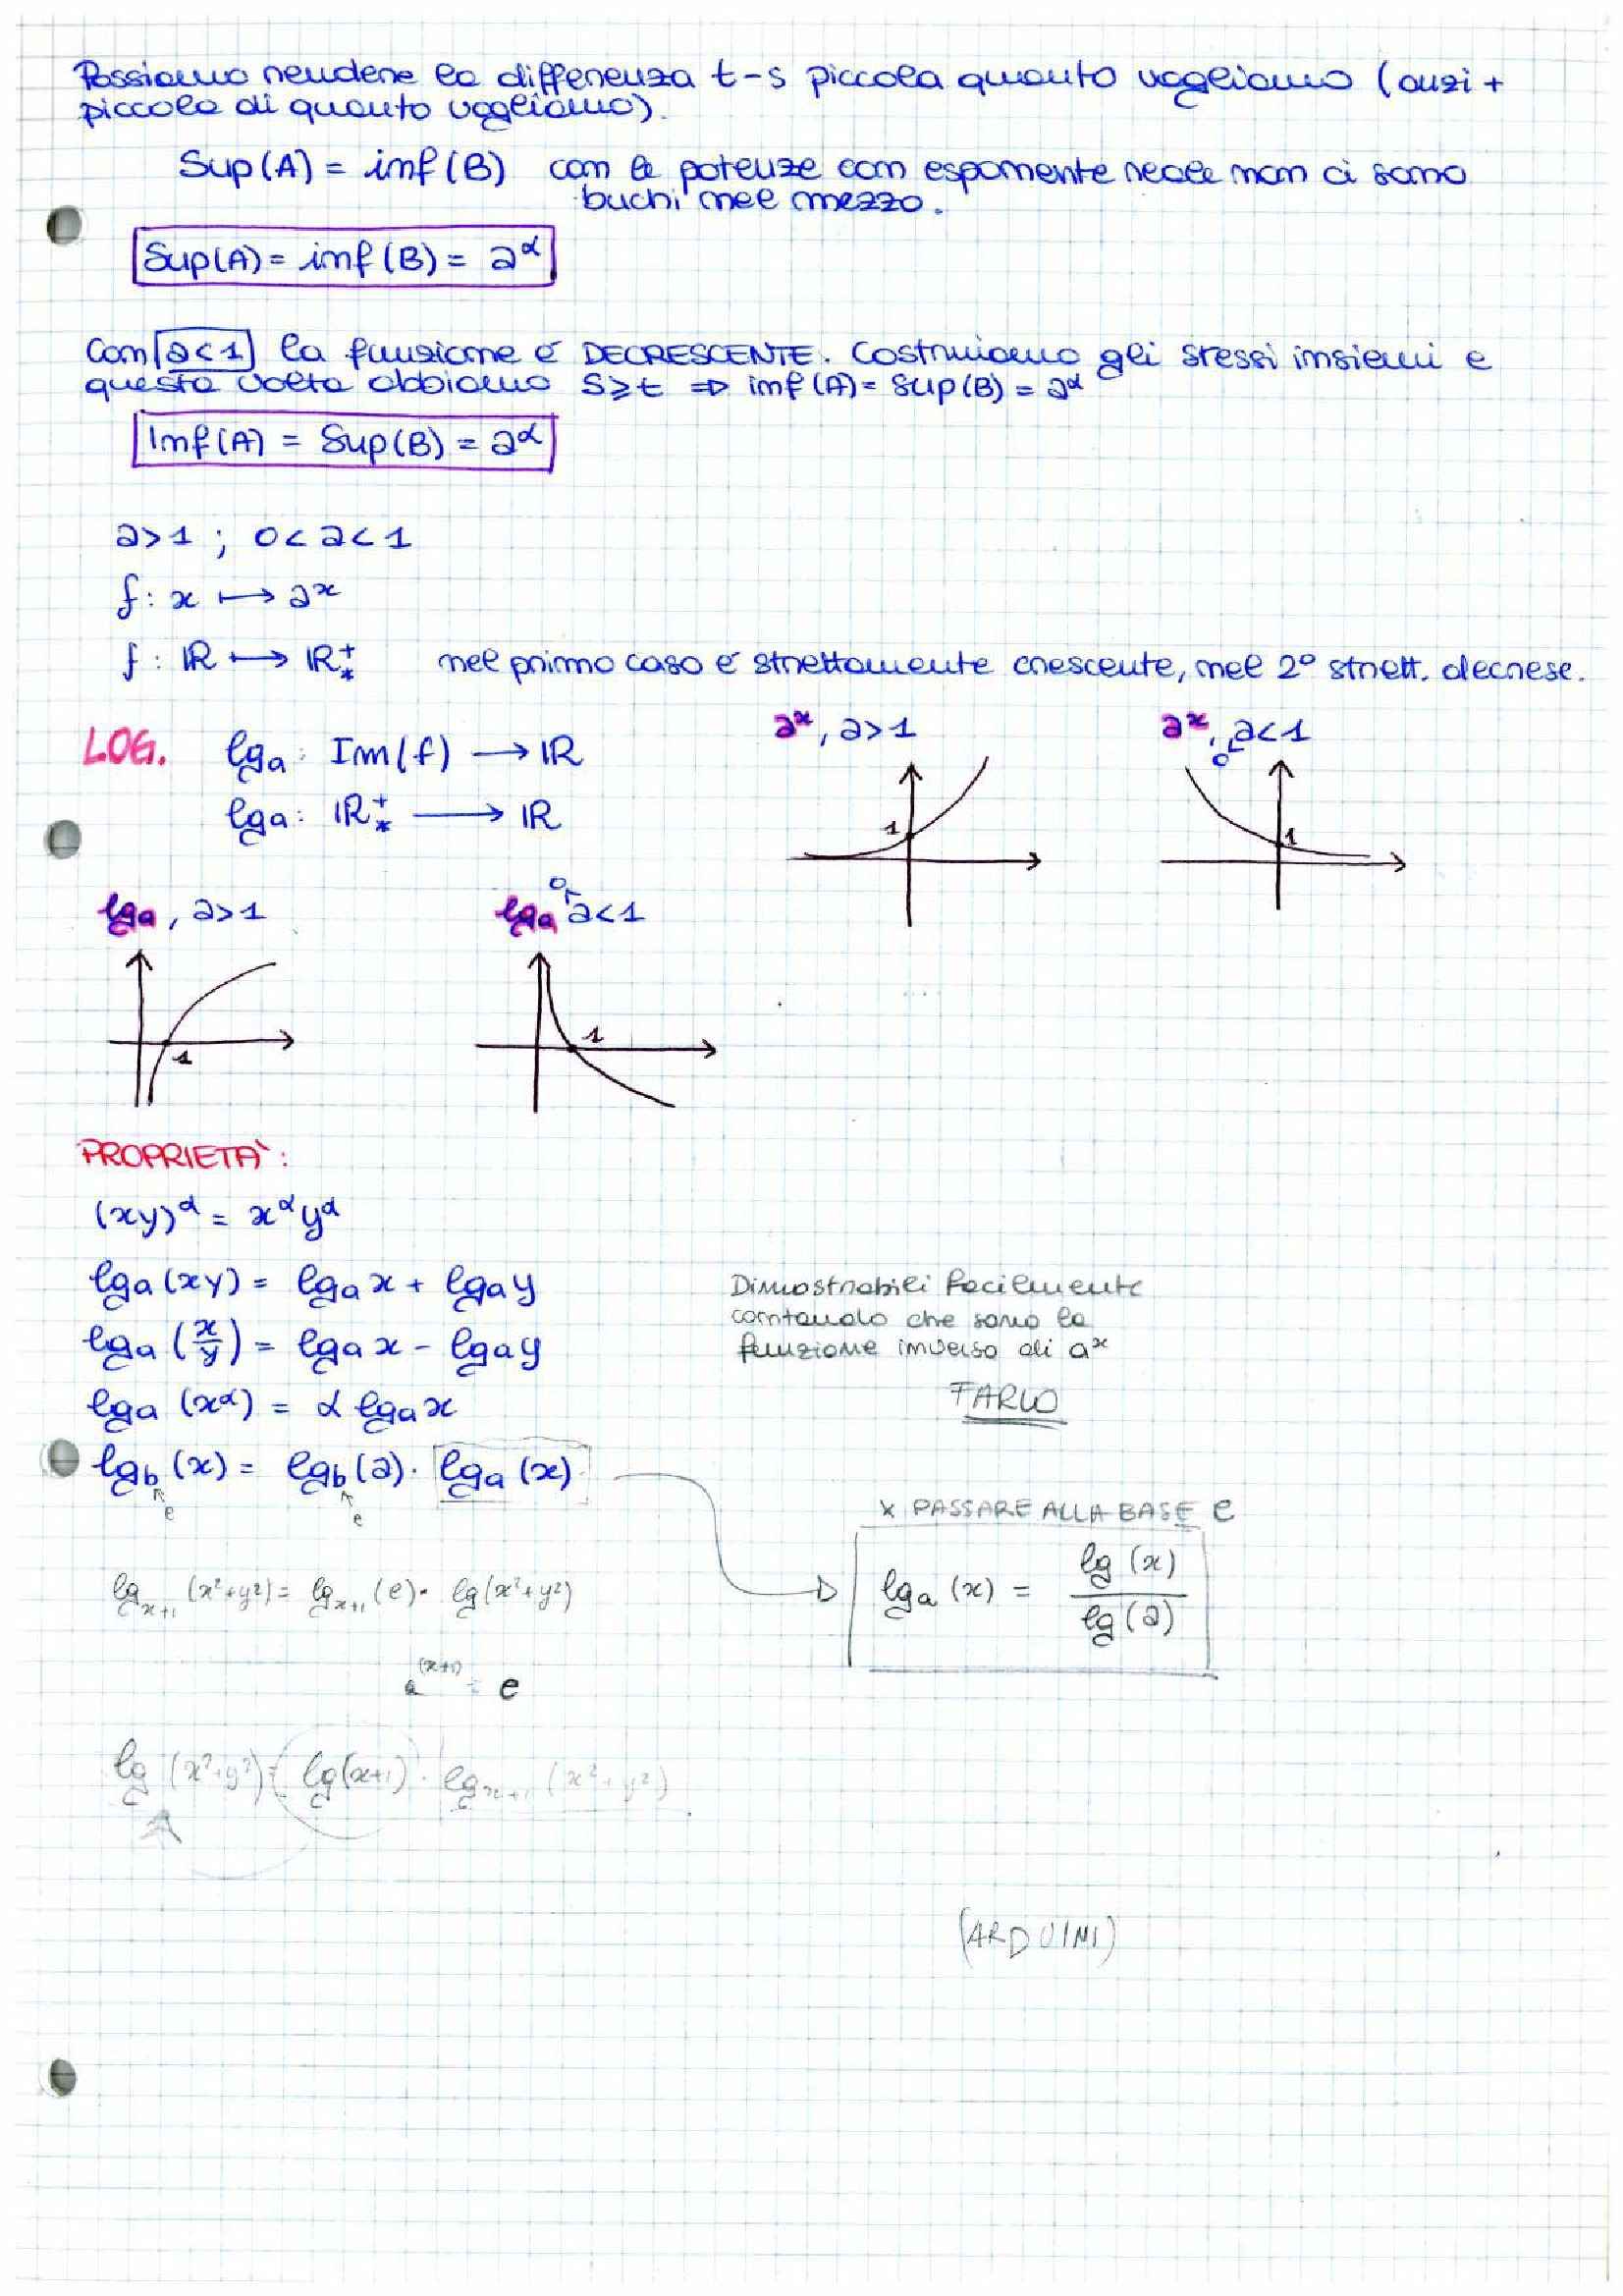 Possiamo rendere la differenza t-s piccola quanto vogliamo (anzi +
piccola di quanto vogliamo).
Sup(A) = inf(B) con le potenze con esponente reale non ci sono
buchi nel mezzo.
Sup(A) = inf(B) = a^α
Con a<1 la funzione è DECRESCENTE. Costruiamo gli stessi insiemi e
questa volta abbiamo s≥t => inf(A) = sup(B) = a^α
Inf(A) = Sup(B) = a^α
a>1 ; 0<a<1
f: x ↦ a^x
f: ℝ ↦ ℝ⁺* nel primo caso è strettamente crescente, nel 2° strett. decresc.
a^x, a>1
a^x, 0<a<1
LOG. lg_a: Im(f) → ℝ
lg_a: ℝ⁺* → ℝ
1
1
lg_a, a>1
lg_a 0<a<1
1
1
PROPRIETÀ:
(xy)^α = x^α y^α
lg_a (xy) = lg_a x + lg_a y
lg_a (x/y) = lg_a x - lg_a y
lg_a (x^α) = α lg_a x
lg_b (x) = lg_b (a) · lg_a (x)
e e
Dimostrabili facilmente
contando che sono la
funzione inversa di a^x
FARLO
x PASSARE ALLA BASE e
lg_a (x) = lg (x) / lg (a)
lg_x+1 (x²+y²) = lg_x+1 (e) · lg (x²+y²)
(x+1) = e
lg (x²+y²) = lg(x+1) · lg_x+1 (x²+y²)
(ARDUINI)